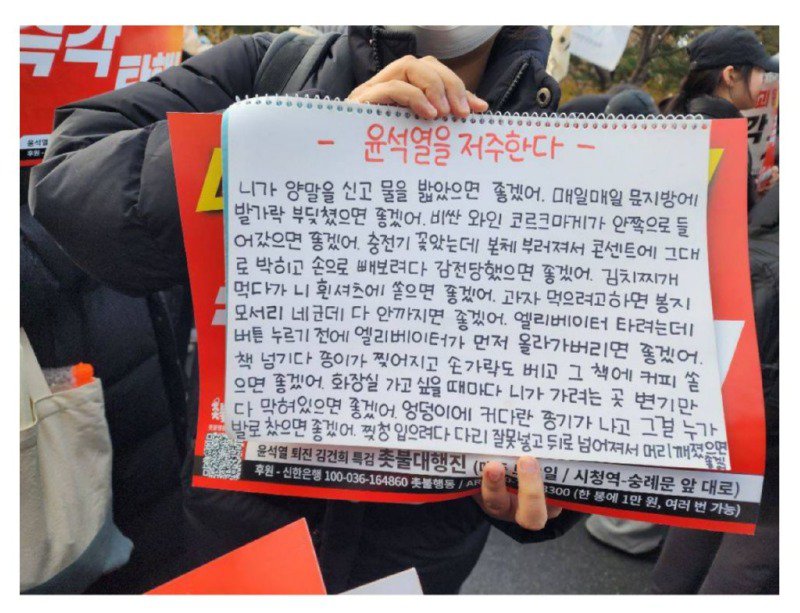 즉각
탄핵
- 윤석열을 저주한다 -
니가 양말을 신고 물을 밟았으면 좋겠어. 매일매일 문지방에
발가락 부딪쳤으면 좋겠어. 비싼 와인 코르크마개가 안쪽으로 들
어갔으면 좋겠어. 충전기 꽂았는데 본체 부러져서 콘센트에 그대
로 박히고 손으로 빼보려다 감전당했으면 좋겠어. 김치찌개
먹다가 니 흰셔츠에 쏟으면 좋겠어. 과자 먹으려고하면 봉지
모서리 네군데 다 안까지면 좋겠어. 엘리베이터 타려는데
버튼 누르기 전에 엘리베이터가 먼저 올라가버리면 좋겠어.
책 넘기다 종이가 찢어지고 손가락도 베고 그 책에 커피 쏟
으면 좋겠어. 화장실 가고 싶을 때마다 니가 가려는 곳 변기만
다 막혀있으면 좋겠어. 엉덩이에 커다란 종기가 나고 그걸 누가
발로 찼으면 좋겠어. 찢청 입으려다 다리 잘못넣고 뒤로 넘어져서 머리 깨졌으면
좋겠
윤석열 퇴진 김건희 특검 촛불대행진 일 / 시청역-숭례문 앞 대로)
후원 - 신한은행 100-036-164860 촛불행동 / 3300 (한 통에 1만 원, 여러 번 가능)